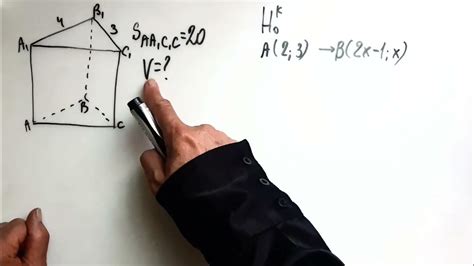 B₁
4
3
A₁
C₁
B
A
C
S_AA₁C₁C=20
V=?
H₀ᵏ
A(2;3) →B(2x-1;x)